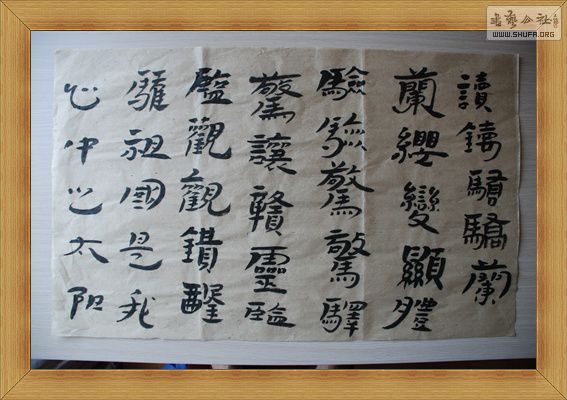 書藝公社
WWW.SHUFA.ORG
讀驕驕蘭
蘭纓變顯體
驗驗驚驚驛
驚讓贛靈臨
觀觀
祖國是我
心中之太阳